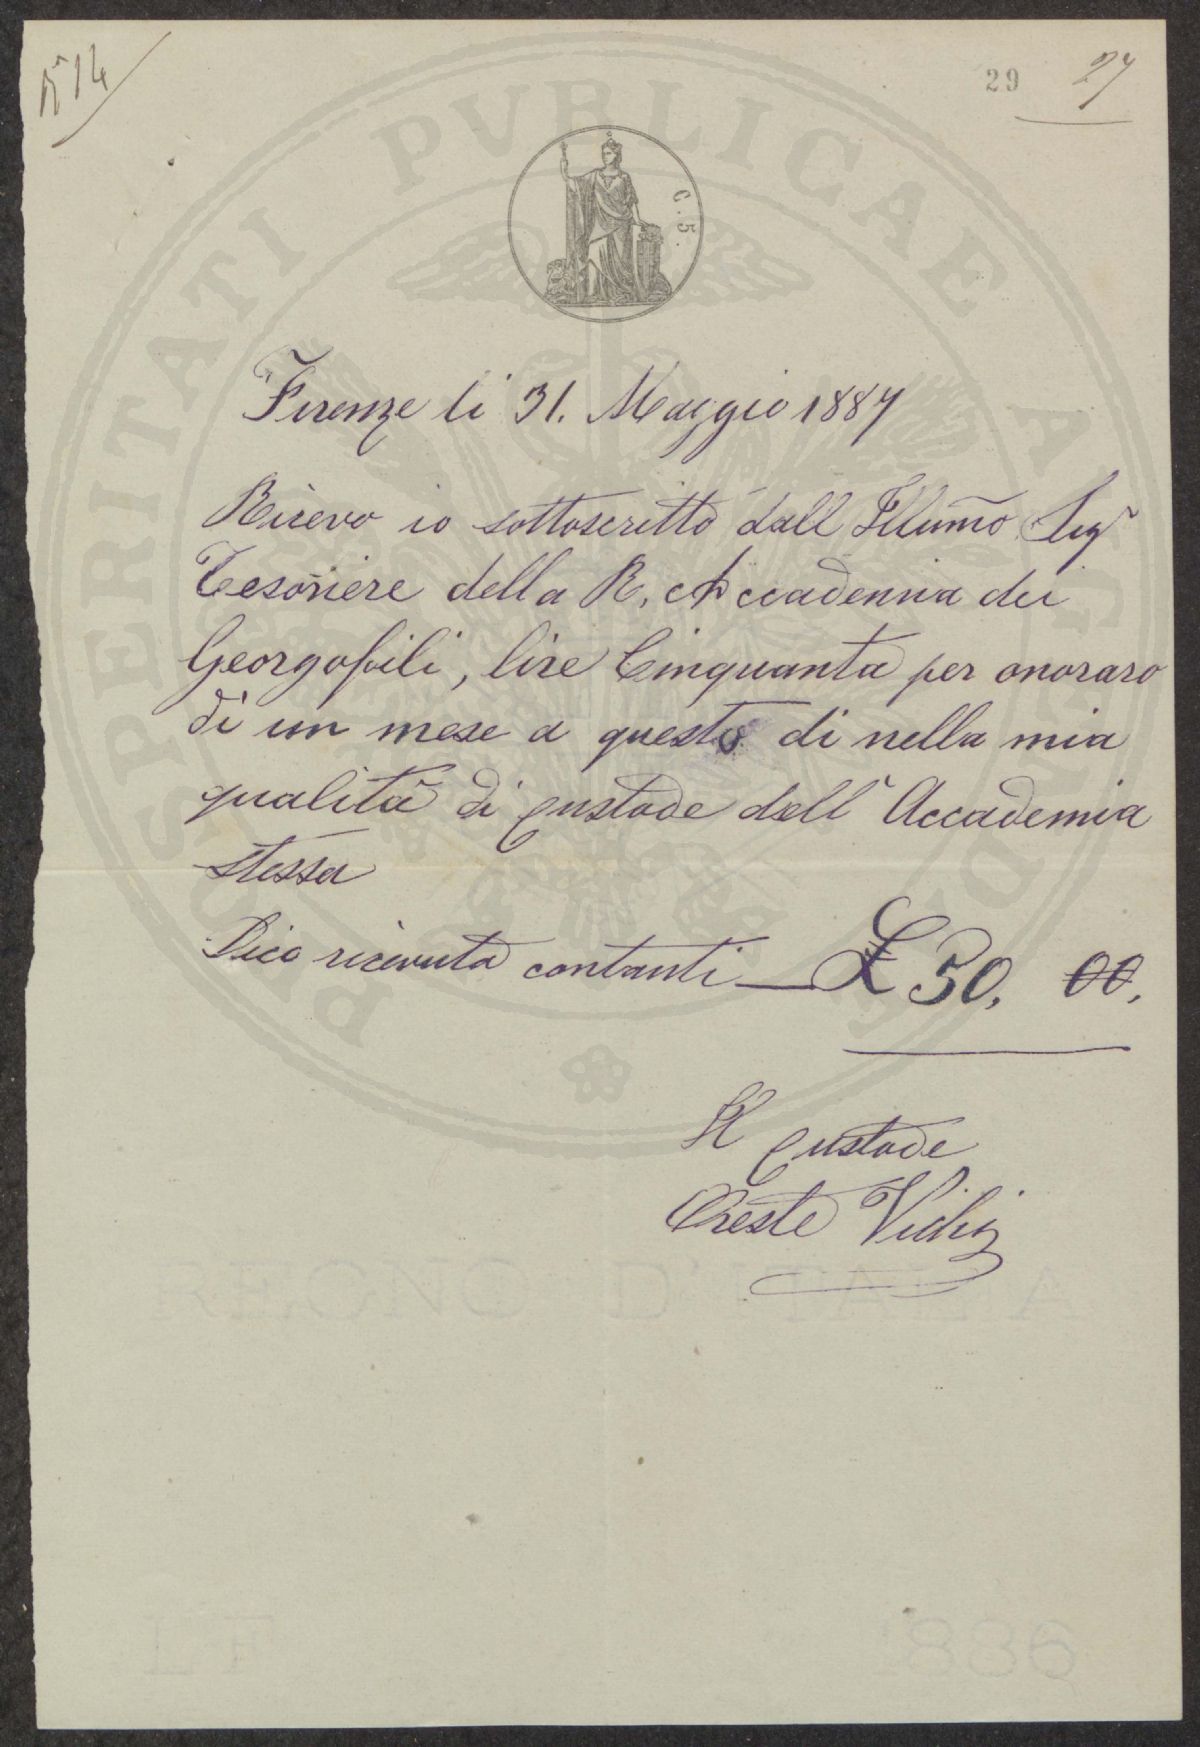 N° 14
29 27
PROSPERITATI PVBLICAE AVGENDAE
C. 5.
Firenze li 31. Maggio 1887
Ricevo io sottoscritto dall Illumo Sigr
Tesoriere della R. Accademia dei
Georgofili, lire Cinquanta per onoraro
di un mese a questo di nella mia
qualità di custode dell' Accademia
stessa
Dico ricevuta contanti — £ 50, 00,
Il Custode
Oreste Vichi
REGNO D'ITALIA
1886